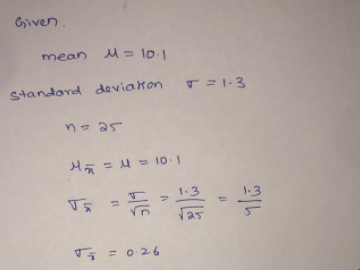 Given.
mean μ = 10.1
standard deviation σ = 1.3
n = 25
μx̄ = μ = 10.1
σx̄ = σ/√n = 1.3/√25 = 1.3/5
σx̄ = 0.26